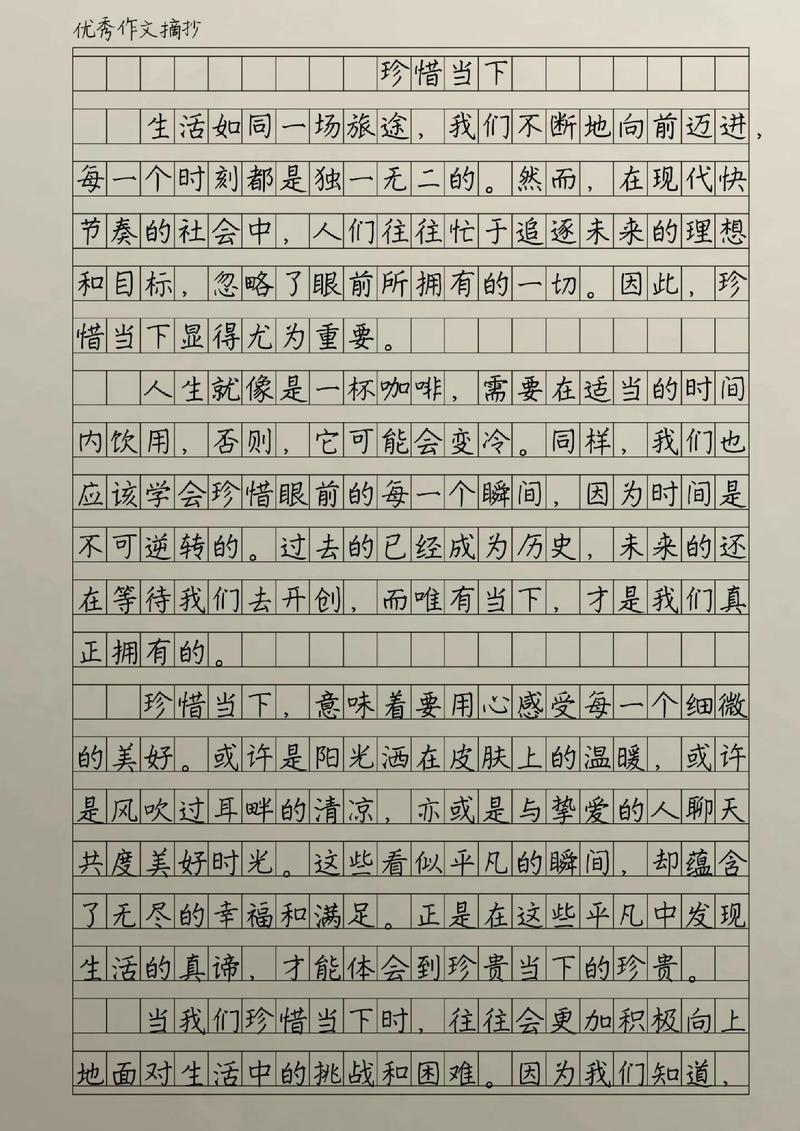 优秀作文摘抄
珍惜当下
生活如同一场旅途，我们不断地向前迈进，
每一个时刻都是独一无二的。然而，在现代快
节奏的社会中，人们往往忙于追逐未来的理想
和目标，忽略了眼前所拥有的一切。因此，珍
惜当下显得尤为重要。
人生就像是一杯咖啡，需要在适当的时间
内饮用，否则，它可能会变冷。同样，我们也
应该学会珍惜眼前的每一个瞬间，因为时间是
不可逆转的。过去的已经成为历史，未来的还
在等待我们去开创，而唯有当下，才是我们真
正拥有的。
珍惜当下，意味着要用心感受每一个细微
的美好。或许是阳光洒在皮肤上的温暖，或许
是风吹过耳畔的清凉，亦或是与挚爱的人聊天
共度美好时光。这些看似平凡的瞬间，却蕴含
了无尽的幸福和满足。正是在这些平凡中发现
生活的真谛，才能体会到珍贵当下的珍贵。
当我们珍惜当下时，往往会更加积极向上
地面对生活中的挑战和困难。因为我们知道，